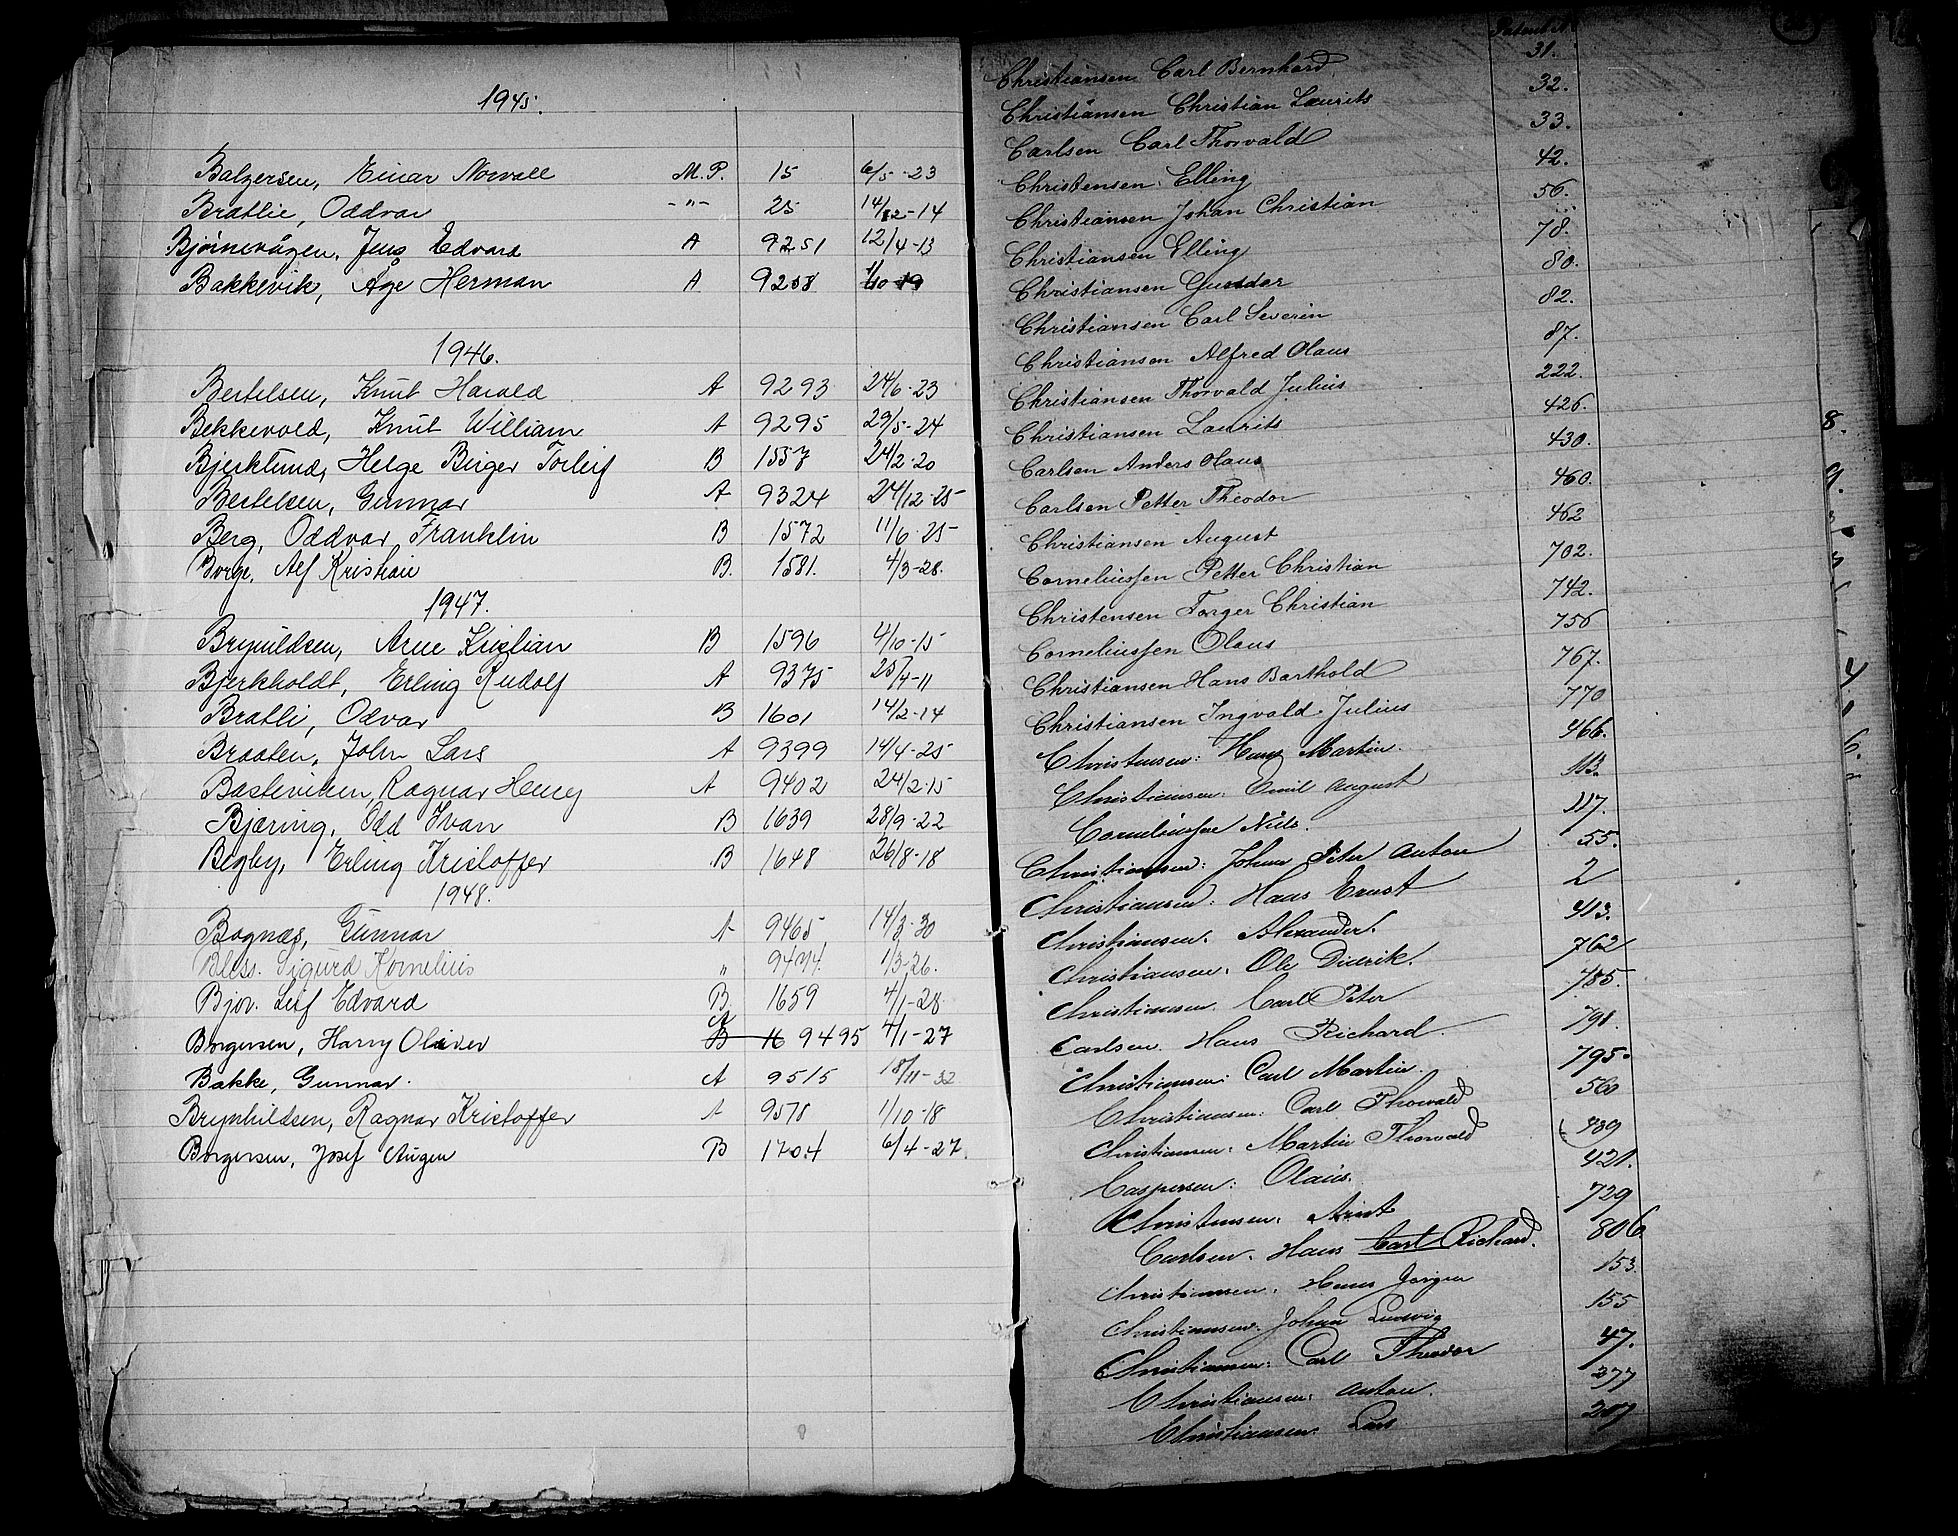 1945.
Balzersen, Einar Norvall M.P. 15 6/5-23
Bratlie, Oddvar -"- 25 14/12-14
Bjørnevågen, Jens Edvard A 9251 12/4-13
Bakkevik, Åge Herman A 9258 1/10 19
1946.
Bertelsen, Knut Harald A 9293 24/6-23
Bekkevold, Knut William A 9295 29/5-24
Bjerklund, Helge Birger Torleif B 1557 24/2-20
Bertelsen, Gunnar A 9324 24/12-25
Berg, Oddvar Franklin B 1572 11/6-25
Borge, Alf Kristian B. 1581. 4/3-28.
1947.
Brynildsen, Arne Kristian B 1596 4/10-15
Bjerkholdt, Erling Rudolf A 9375 25/4-11
Bratli, Odvar B 1601 14/2-14
Braaten, John Lars A 9399 14/4-25
Bastevinen, Ragnar Henry A 9402 24/2-15
Bjæring, Odd Ivan B 1639 28/9-22
Bigby, Erling Kristoffer B 1648 26/8-18
1948.
Bognæs, Gunnar A 9465 14/3-30
Bless. Sigurd Kornelius " 9474. 1/3-26.
Bjov. Leif Edvard B. 1659 4/1-28
Borgersen, Harry Oliver A B 16 9495 4/1-27
Bakke, Gunnar. A 9515 18/11-32
Brynhildsen, Ragnar Kristoffer A 9578 1/10-18
Borgersen, Josef Augen B 1704 6/4-27.
Patent N
Christiansen Carl Bernhard 31.
Christiansen Christian Laurits 32.
Carlsen Carl Thorvald 33.
Christensen Elling 42.
Christiansen Johan Christian 56.
Christiansen Elling 78.
Christiansen Gunder 80.
Christiansen Carl Severin 82.
Christiansen Alfred Olaus 87.
Christiansen Thorvald Julius 222.
Christiansen Laurits 426.
Carlsen Anders Olaus 430.
Carlsen Petter Theodor 460.
Christiansen August 462
Corneliussen Petter Christian 702.
Christensen Torger Christian 742.
Corneliussen Olaus 756
Christiansen Hans Barthold 767.
Christiansen Ingvald Julius 770
Christensen: Hans Martin. 466.
Christiansen: Emil August 113.
Corneliussen Nils. 117.
Christiansen: Johan Peter Anton 55.
Christiansen: Hans Ernst 2
Christiansen. Alexander. 413.
Christiansen. Ole Didrik. 762
Christiansen. Carl Peter 785.
Carlsen. Hans Richard 791.
Christiansen: Carl Martin. 795.
Christiansen: Carl Thorvald 560
Christiansen: Martin Thorvald 489
Caspersen: Olaus. 421.
Christensen. Arnt 729
Carlsen. Hans Carl Richard. 806.
Christiansen. Hans Jørgen 153.
Christiansen. Johan Ludvig 155
Christiansen: Carl Theodor 47.
Christiansen: Anton. 377
Christiansen. Lars